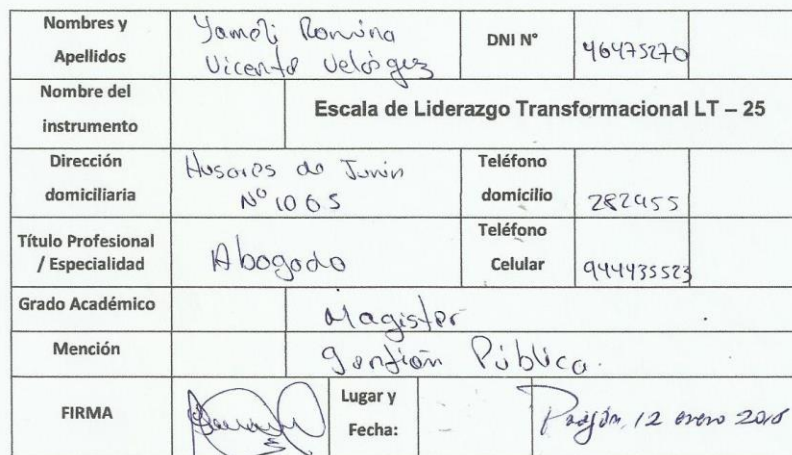 Nombres y Apellidos Yameli Romina Vicente Velásquez DNI N° 46475270
Nombre del instrumento Escala de Liderazgo Transformacional LT – 25
Dirección domiciliaria Husares de Junin N° 1065 Teléfono domicilio 282955
Título Profesional / Especialidad Abogado Teléfono Celular 944435523
Grado Académico Magister
Mención Gestión Pública.
FIRMA Lugar y Fecha: 12 enero 2018